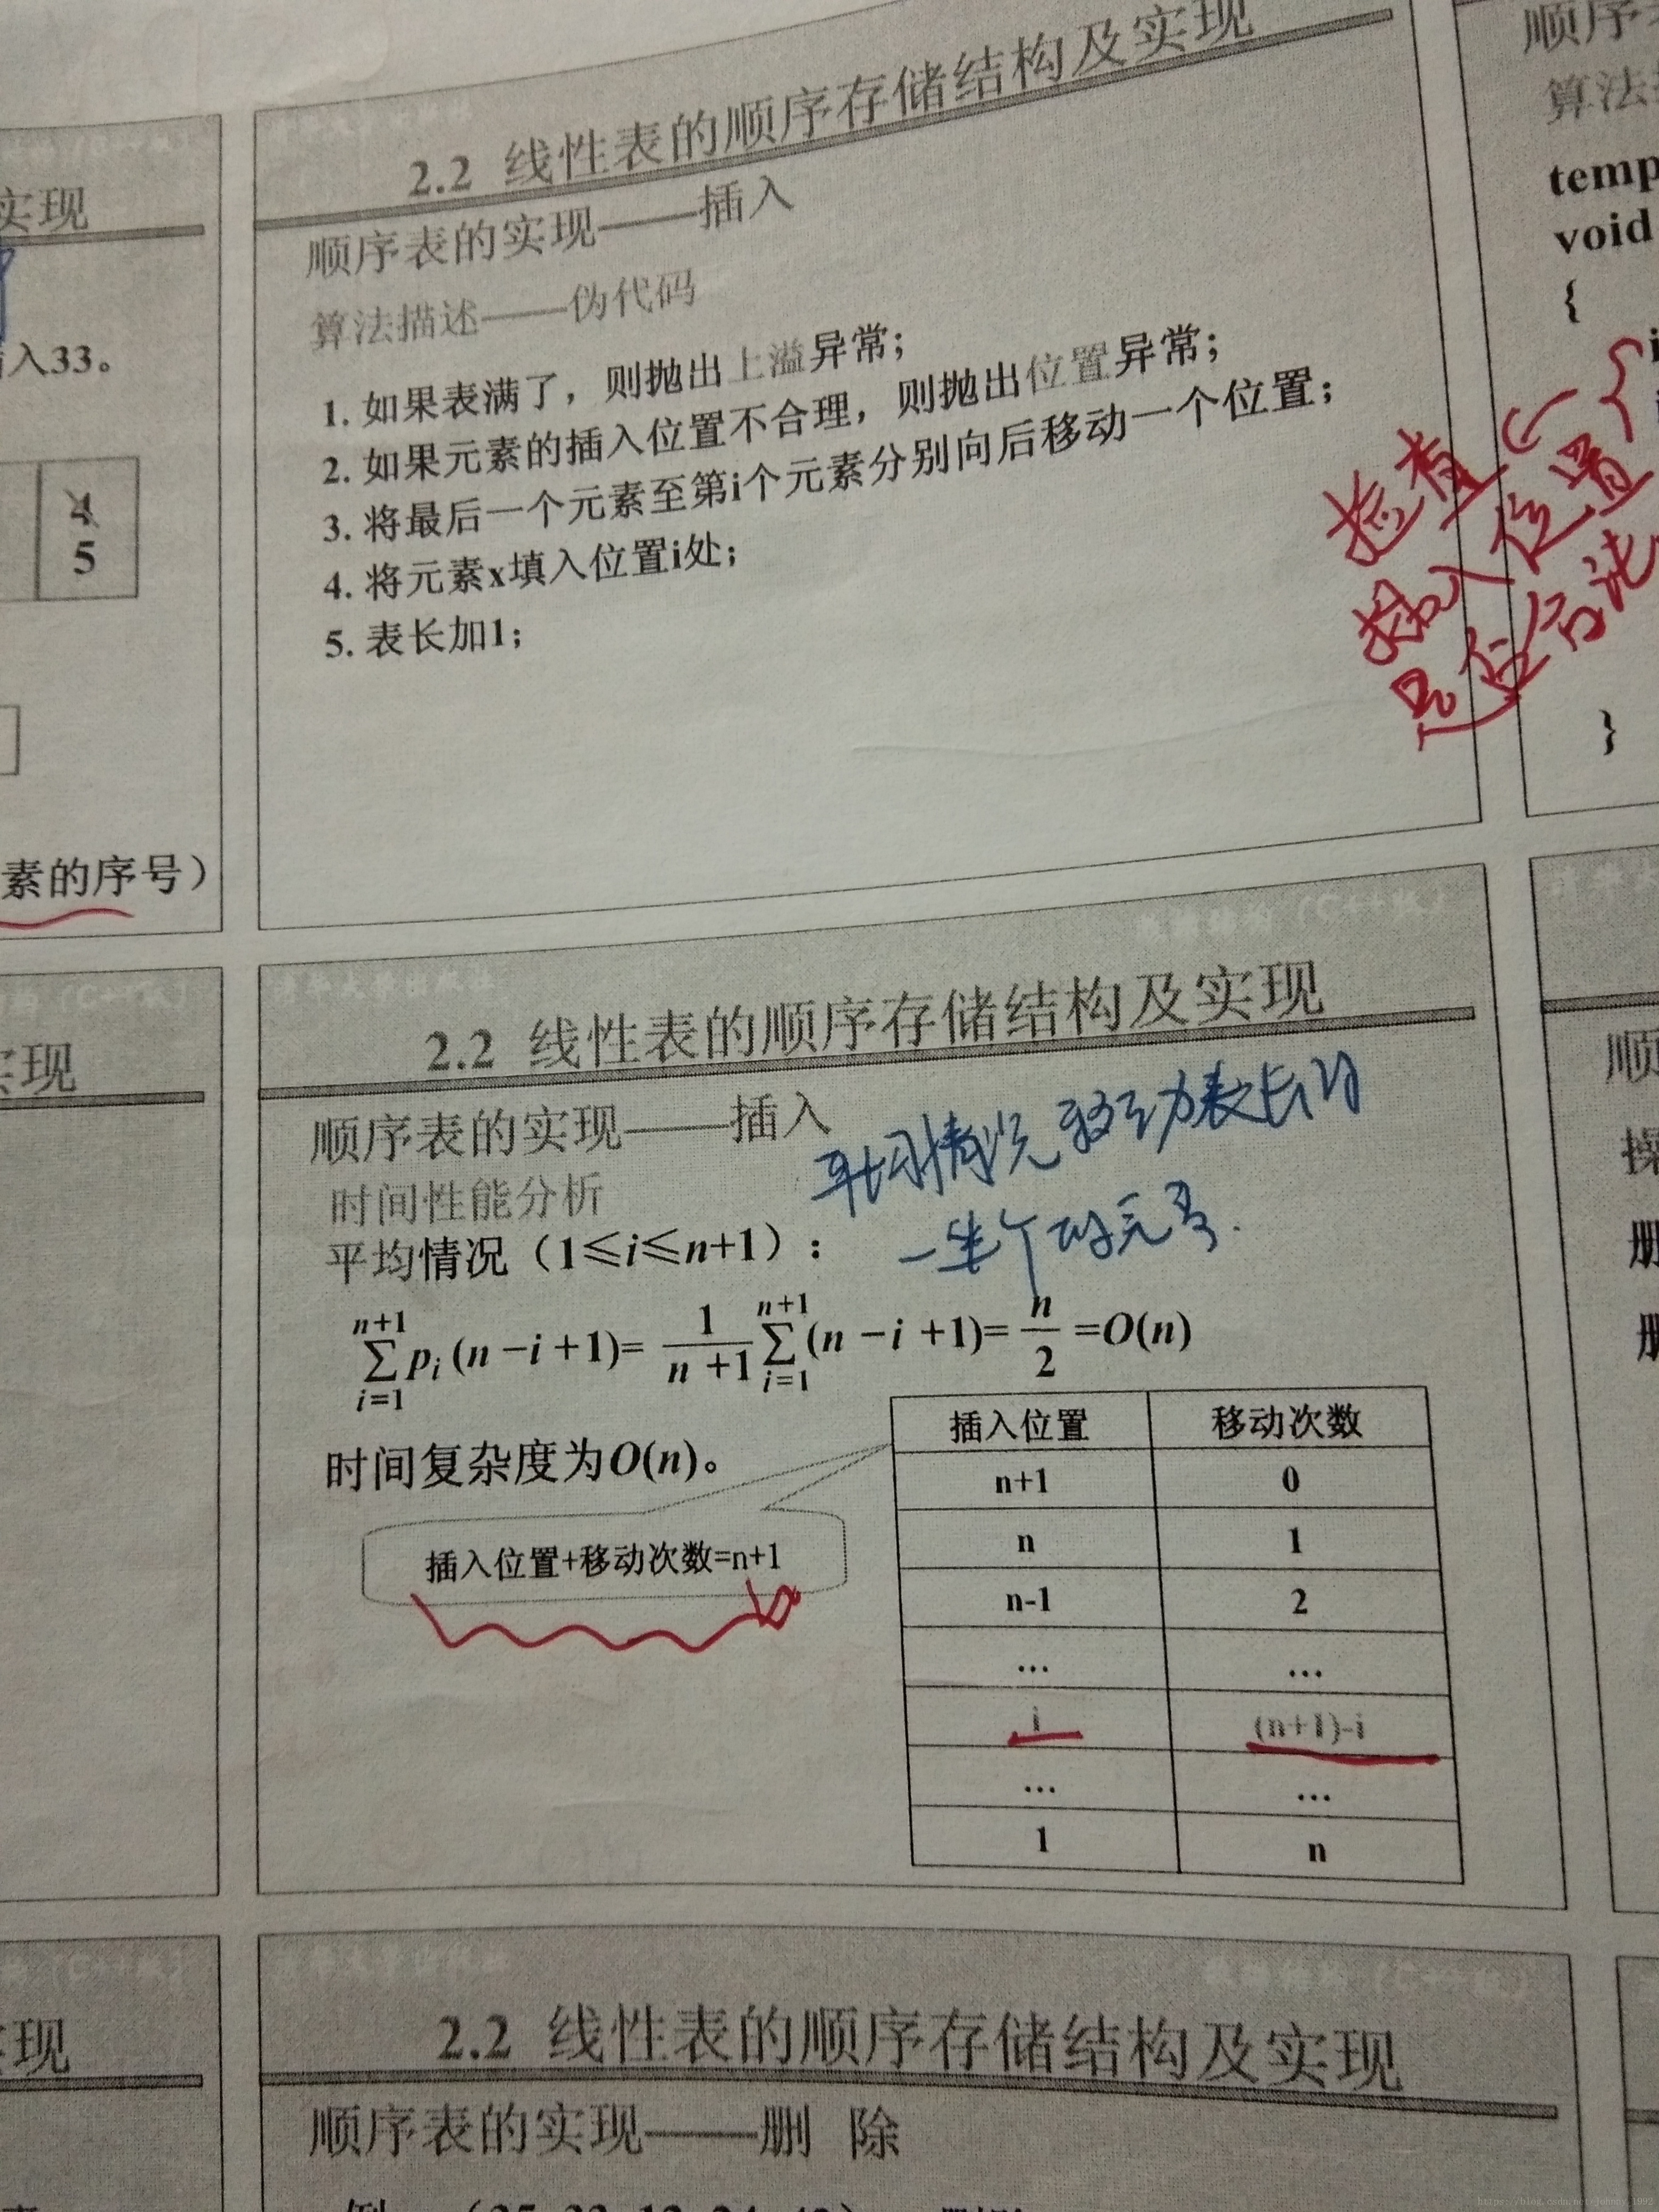 2.2 线性表的顺序存储结构及实现
顺序表的实现——插入
算法描述——伪代码
1. 如果表满了，则抛出上溢异常；
2. 如果元素的插入位置不合理，则抛出位置异常；
3. 将最后一个元素至第i个元素分别向后移动一个位置；
4. 将元素x填入位置i处；
5. 表长加1；
实现
入33。
4
5
素的序号）
顺序
算法
temp
void
{
检查
插入位置
是否合法
}
数据结构（C++版）
2.2 线性表的顺序存储结构及实现
顺序表的实现——插入
平均情况 移动表长的
一半个的元素.
时间性能分析
平均情况（1≤i≤n+1）：
n+1∑i=1 pi (n−i+1)= 1/(n+1) n+1∑i=1 (n−i+1)= n/2 =O(n)
时间复杂度为O(n)。
插入位置+移动次数=n+1
插入位置 移动次数
n+1 0
n 1
n-1 2
... ...
i (n+1)-i
... ...
1 n
实现
顺
操
册
册
清华大学出版社 数据结构（C++版）
2.2 线性表的顺序存储结构及实现
顺序表的实现——删 除
现